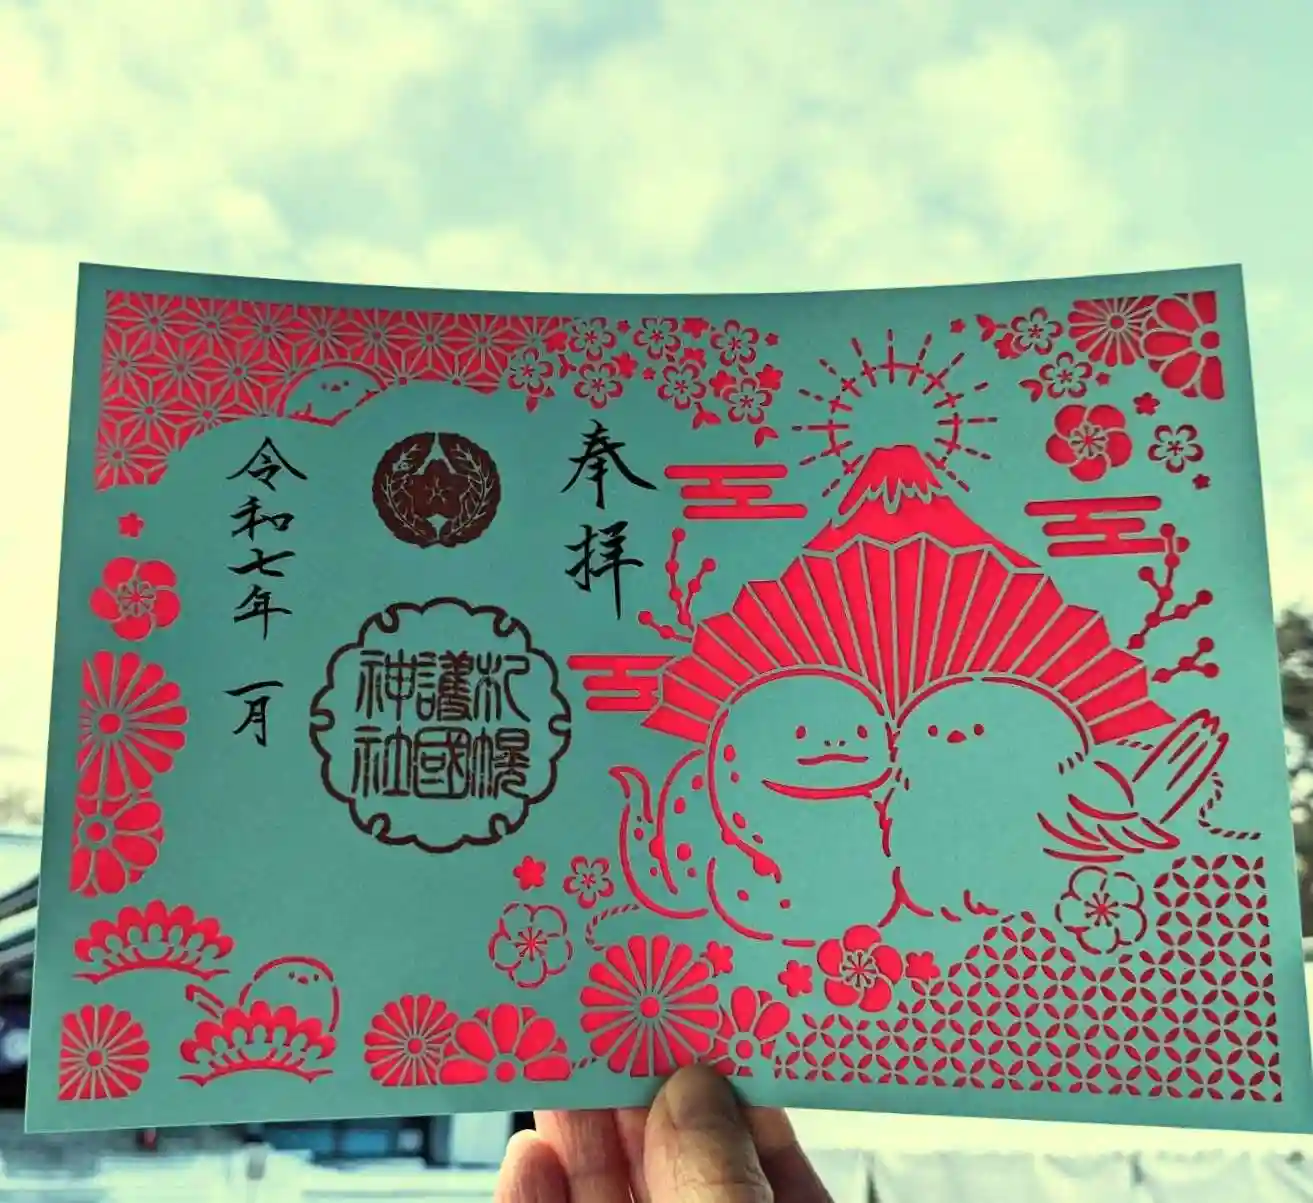 奉拝
札幌
護國
神社
令和七年 一月